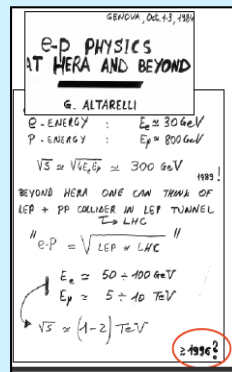 GENOVA, Oct. 1-3, 1984
e-p PHYSICS
AT HERA AND BEYOND
G. ALTARELLI
e - ENERGY : Ee ≃ 30 GeV
P - ENERGY : Ep ≃ 800 GeV
√S ≃ √4EeEp ≃ 300 GeV
1989!
BEYOND HERA ONE CAN THINK OF
LEP + PP COLLIDER IN LEP TUNNEL
↳ LHC
"e-P = √LEP × LHC"
Ee ≃ 50 ÷ 100 GeV
Ep ≃ 5 ÷ 10 TeV
√S ≃ (1-2) TeV
≥ 1996?